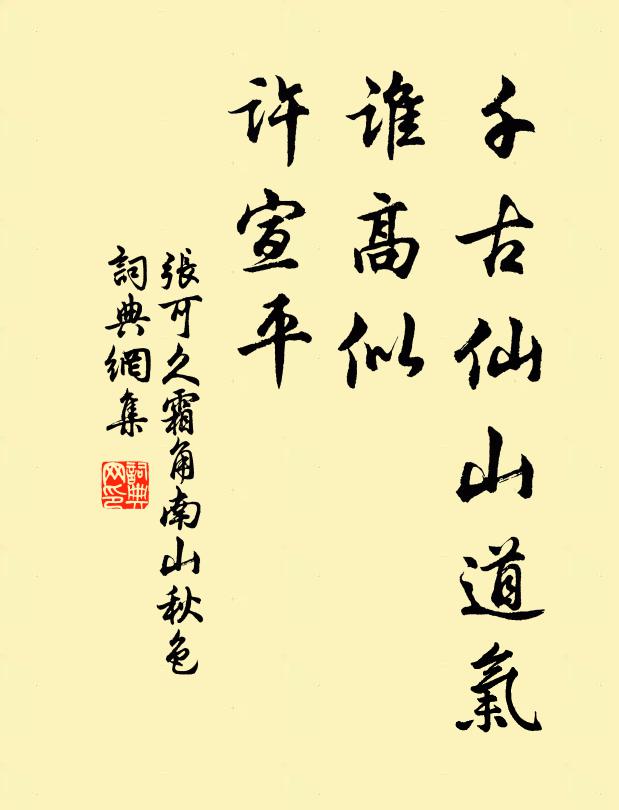 千古仙山道氣
誰高似
許宣平
張可久霜角南山秋色
詞典網集
詞典网印